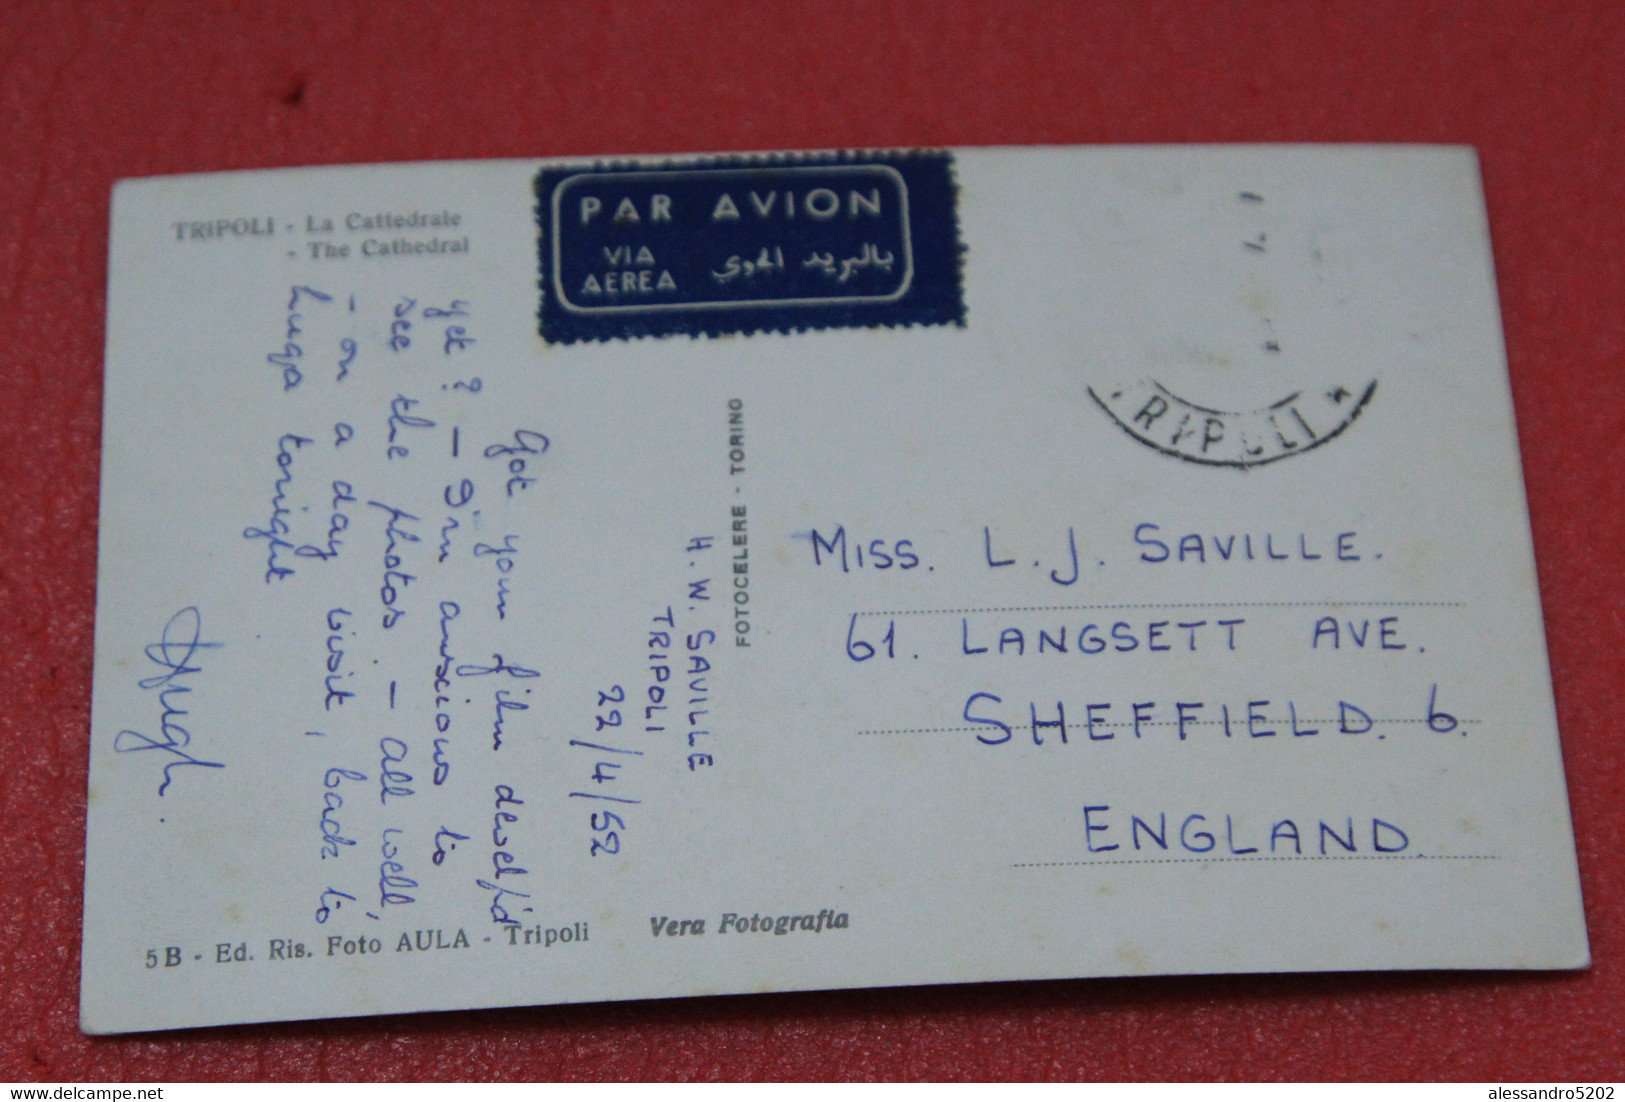 TRIPOLI - La Cattedrale
- The Cathedral
PAR AVION
VIA
AEREA
بالبريد الجوي
TRIPOLI *
H. W. SAVILLE
TRIPOLI
22/4/52
Got your film devel'p'd
yet? - I'm anxious to
see the photos. - All well,
- on a day visit, back to
luqa tonight
Hugh.
FOTOCELERE - TORINO
MISS. L. J. SAVILLE.
61. LANGSETT AVE.
SHEFFIELD. 6.
ENGLAND.
5 B - Ed. Ris. Foto AULA - Tripoli
Vera Fotografia
alessandro5202